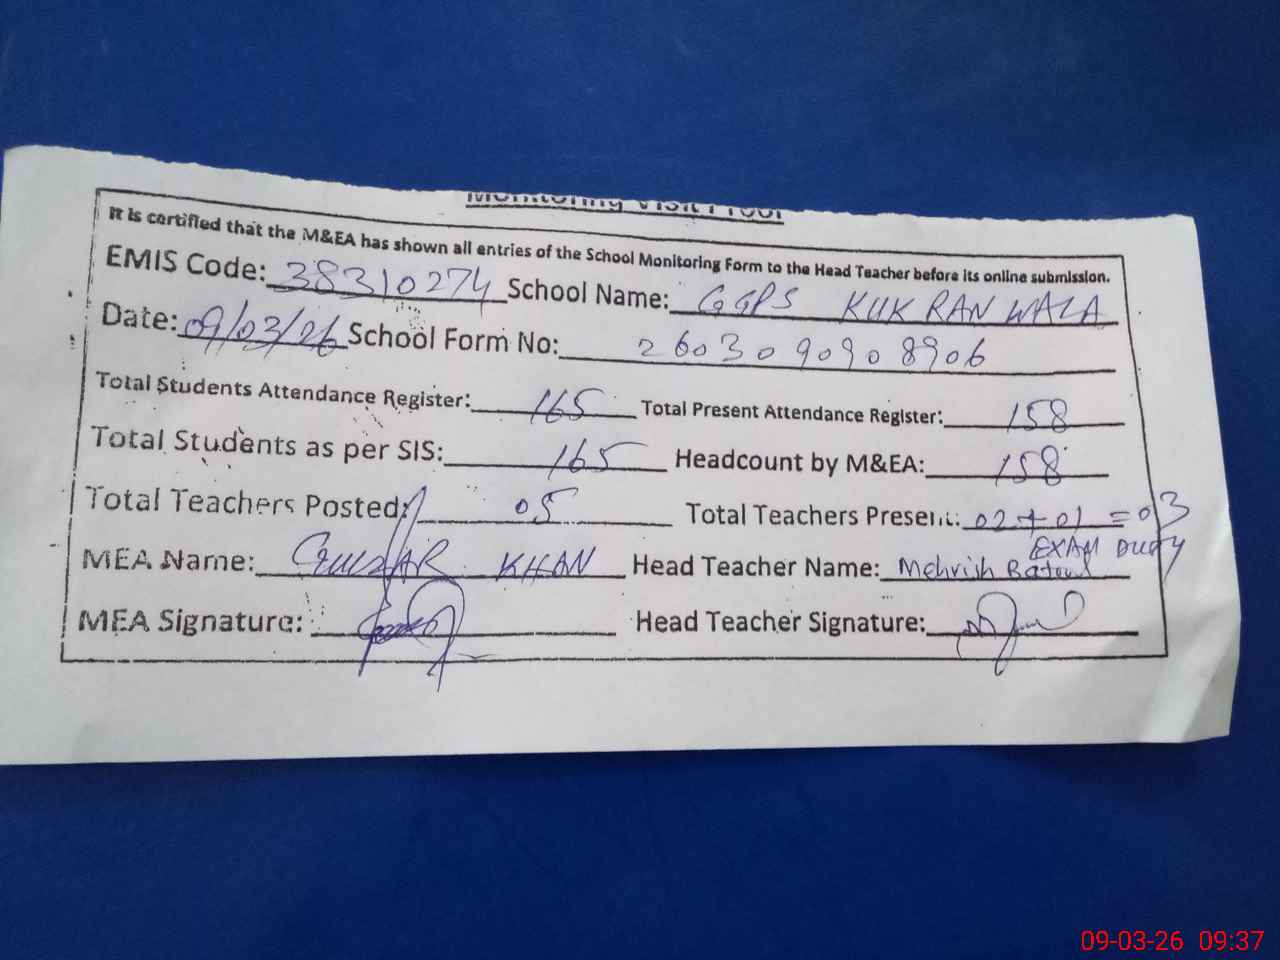 Monitoring Visit Proof
It is certified that the M&EA has shown all entries of the School Monitoring Form to the Head Teacher before its online submission.
EMIS Code: 38310274 School Name: GGPS KUKRAN WALA
Date: 09/03/26 School Form No: 2603090908906
Total Students Attendance Register: 165 Total Present Attendance Register: 158
Total Students as per SIS: 165 Headcount by M&EA: 158
Total Teachers Posted: 05 Total Teachers Present: 02 + 01 = 03
EXAM Duty
MEA Name: GULZAR KHAN Head Teacher Name: Mehrish Batool
MEA Signature: Head Teacher Signature:
09-03-26 09:37